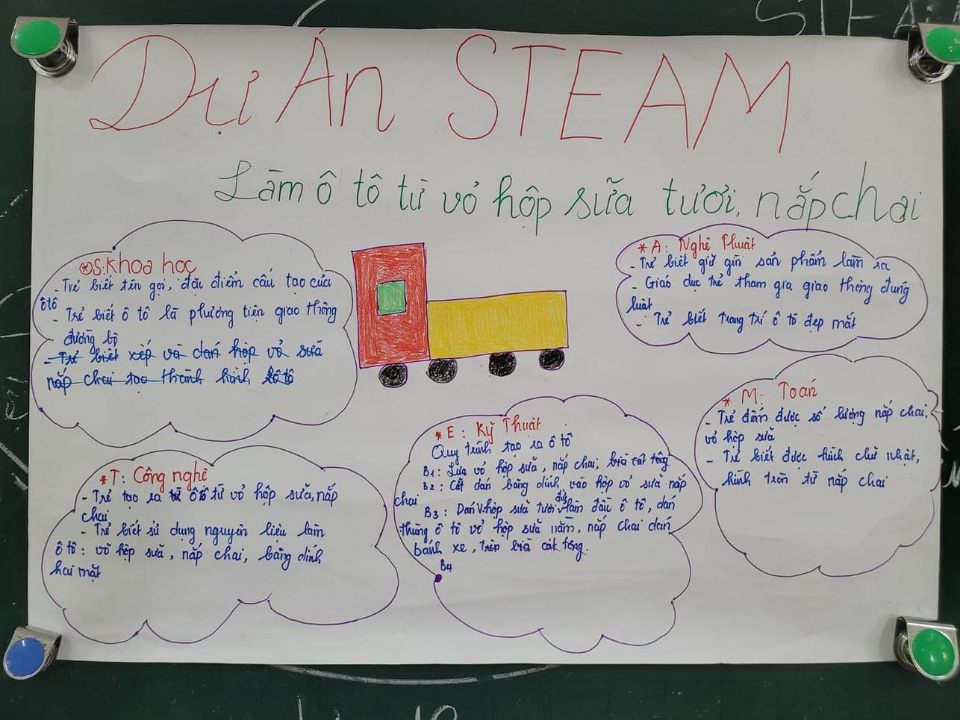 STEA
Dự Án STEAM
Làm ô tô từ vỏ hộp sữa tươi, nắp chai
* S: Khoa học
- Trẻ biết tên gọi, đặc điểm cấu tạo của
ôtô
- Trẻ biết ô tô là phương tiện giao thông
đường bộ
- Trẻ biết xếp và dán hộp vỏ sữa
nắp chai tạo thành hình ôtô
* A: Nghệ Thuật
- Trẻ biết giữ gìn sản phẩm làm ra
- Giáo dục trẻ tham gia giao thông đúng
luật
- Trẻ biết trang trí ô tô đẹp mắt
* M: Toán
- Trẻ đếm được số lượng nắp chai,
vỏ hộp sữa
- Trẻ biết được hình chữ nhật,
hình tròn từ nắp chai
* T: Công nghệ
- Trẻ tạo ra ôtô từ vỏ hộp sữa, nắp
chai
- Trẻ biết sử dụng nguyên liệu làm
ô tô: vỏ hộp sữa, nắp chai, băng dính
hai mặt
* E: Kỹ Thuật
Quy trình tạo ra ô tô
B1: Lựa vỏ hộp sữa, nắp chai, bìa cát tông
B2: Cắt dán băng dính vào hộp vỏ sữa nắp
chai
B3: Dán vỏ hộp sữa tươi đứng làm đầu ô tô, dán
thùng ô tô vỏ hộp sữa nằm, nắp chai dán
bánh xe, trên bìa cát tông.
B4